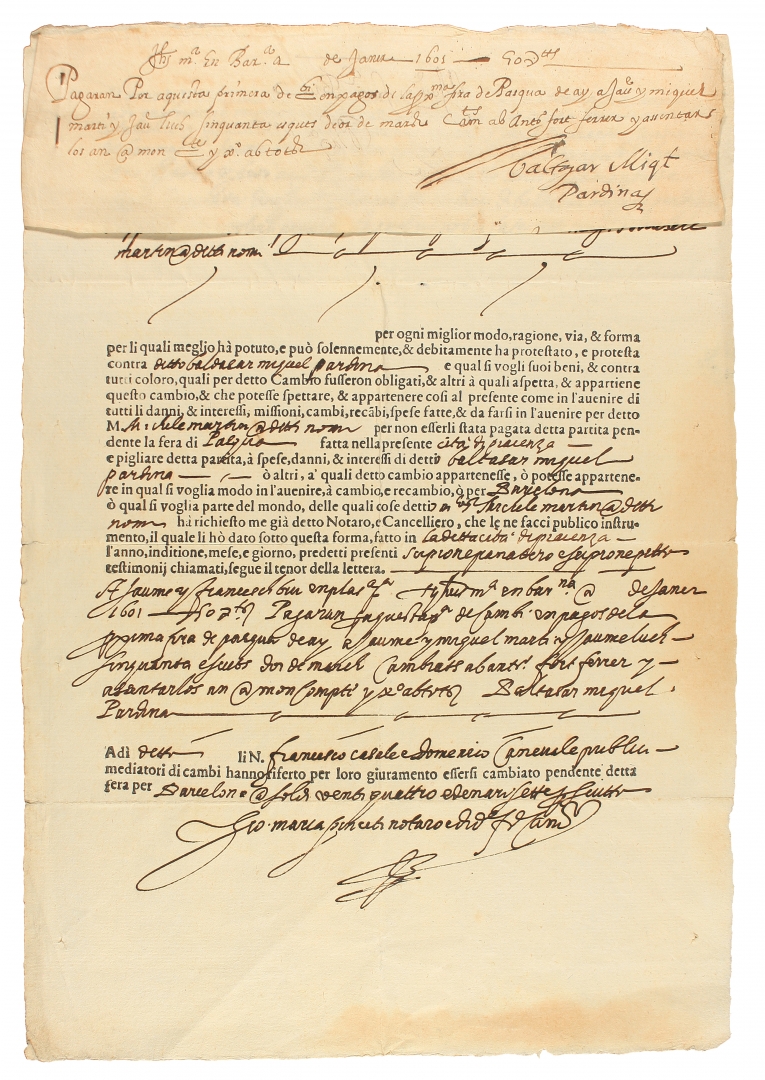 Jhs mª En Barª a de Janer 1601 — 50
Pagaran Per aquesta primera de en pagos de la fira de Pasqua de ay a Jau y miquel
marti y Jau Sinquanta de or de march ab Ant fort ferrer y assentar
los an @ mon y xº ab tots
Baltezar Miql
Pardina
martin @ detti nomi
per ogni miglior modo, ragione, via, & forma
per li quali meglio hà potuto, e può solennemente, & debitamente ha protestato, e protesta
contra ditto baldasar miquel pardina e qual si vogli suoi beni, & contra
tutti coloro, quali per detto Cambio fusseron obligati, & altri à quali aspetta, & appartiene
questo cambio, & che potesse spettare, & appartenere così al presente come in l'auenire di
tutti li danni, & interessi, missioni, cambi, recābi, spese fatte, & da farsi in l'auenire per detto
M. Michele martin @ detti nomi per non esserli stata pagata detta partita pen-
dente la fera di Pasqua fatta nella presente città di piacenza —
e pigliare detta partita, à spese, danni, & interessi di detto baltasar miquel
pardina — ò altri, a' quali detto cambio appartenesse, ò potesse appartene-
re in qual si voglia modo in l'auenire, à cambio, e recambio, ò per Barcelona
ò qual si voglia parte del mondo, delle quali cose detto Michele martin @ detti
nomi hà richiesto me già detto Notaro, e Cancelliero, che le ne facci publico instru-
mento, il quale li hò dato sotto questa forma, fatto in la detta città di piacenza —
l'anno, inditione, mese, e giorno, predetti presenti scipione panattero e scipione
testimonij chiamati, segue il tenor della lettera.
A Jaume y francesch en plasª mª en barnª @ de Janer
1601 — 50 Pagaran per aquesta pª de Cambi en pagos de la
proxima fira de pasqua de ay a Jaume y miquel marti y Jaume
sinquanta escuts dor de march Cambiats ab ant. fort ferrer y —
assentarlos an @ mon Compte y xº ab tots Baltasar miquel
Pardina
Adì detto li N. francesco Casale e Domenico Caneuale publici —
mediatori di cambi hanno riferto per loro giuramento essersi cambiato pendente detta
fera per Barcelona @ soldi venti quattro e denari sette per scutto
Gio. maria notaro